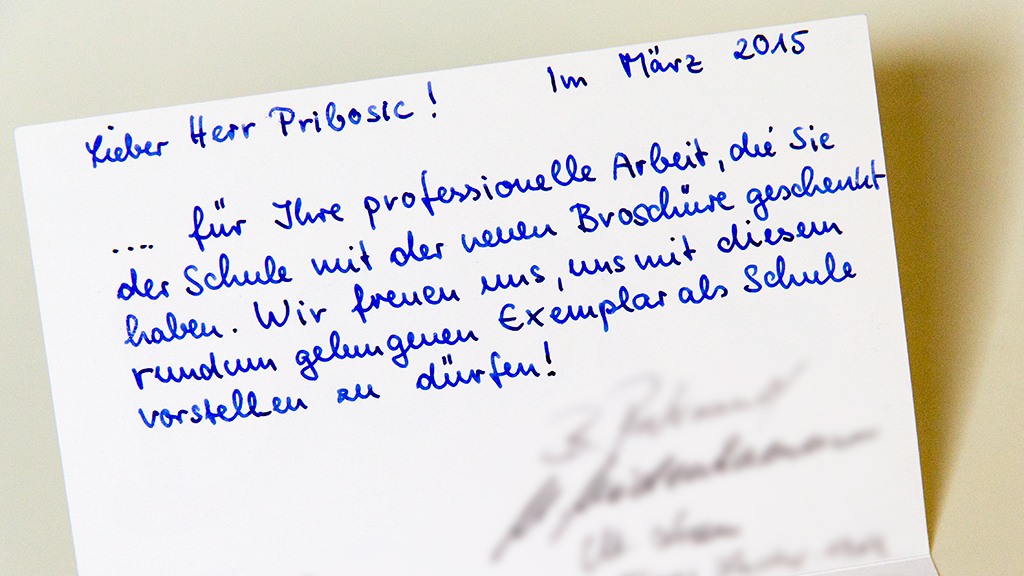 Im März 2015
Lieber Herr Pribosic!
.... für Ihre professionelle Arbeit, die Sie
der Schule mit der neuen Broschüre geschenkt
haben. Wir freuen uns, uns mit diesem
rundum gelungenen Exemplar als Schule
vorstellen zu dürfen!